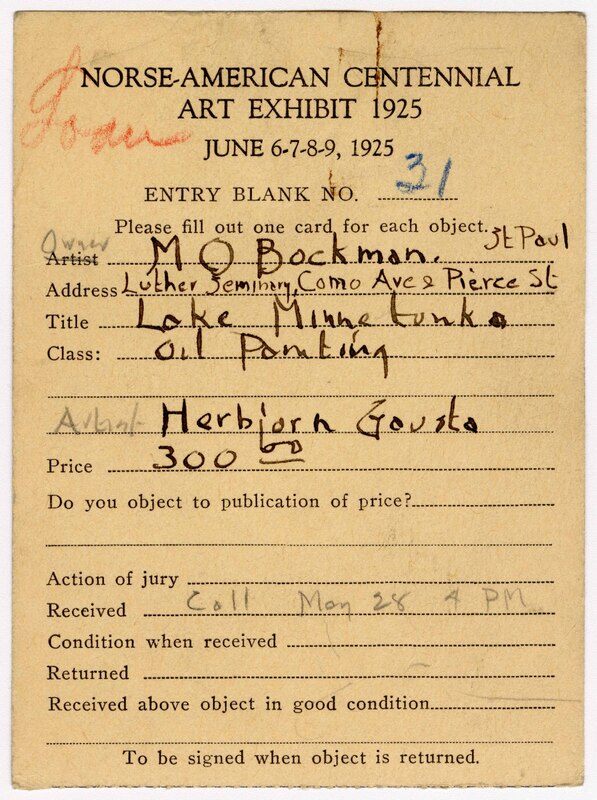 NORSE-AMERICAN CENTENNIAL
ART EXHIBIT 1925
Loan
JUNE 6-7-8-9, 1925
ENTRY BLANK NO. 31
Please fill out one card for each object.
Owner St Paul
Artist M O Bockman.
Address Luther Seminary, Como Ave & Pierce St
Title Lake Minnetonka
Class: Oil Painting
Artist Herbjorn Gausta
Price 300 00
Do you object to publication of price?
Action of jury
Received Call May 28 4 PM
Condition when received
Returned
Received above object in good condition
To be signed when object is returned.